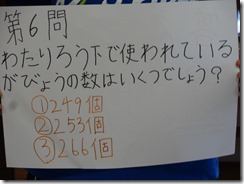 第6問
わたりろう下で使われている
がびょうの数はいくつでしょう？
①249個
②253個
③266個